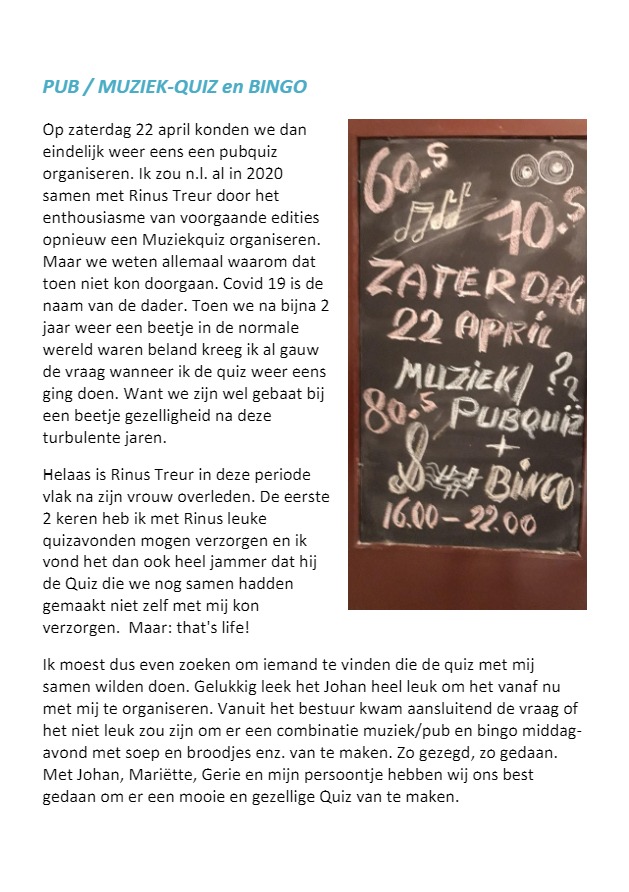 PUB / MUZIEK-QUIZ en BINGO
Op zaterdag 22 april konden we dan
eindelijk weer eens een pubquiz
organiseren. Ik zou n.l. al in 2020
samen met Rinus Treur door het
enthousiasme van voorgaande edities
opnieuw een Muziekquiz organiseren.
Maar we weten allemaal waarom dat
toen niet kon doorgaan. Covid 19 is de
naam van de dader. Toen we na bijna 2
jaar weer een beetje in de normale
wereld waren beland kreeg ik al gauw
de vraag wanneer ik de quiz weer eens
ging doen. Want we zijn wel gebaat bij
een beetje gezelligheid na deze
turbulente jaren.
Helaas is Rinus Treur in deze periode
vlak na zijn vrouw overleden. De eerste
2 keren heb ik met Rinus leuke
quizavonden mogen verzorgen en ik
vond het dan ook heel jammer dat hij
de Quiz die we nog samen hadden
gemaakt niet zelf met mij kon
verzorgen.  Maar: that's life!
60.s
70.s
ZATERDAG
22 APRIL
MUZIEK/ ??
80.s PUBQUIZ
+
BINGO
16.00 – 22.00
Ik moest dus even zoeken om iemand te vinden die de quiz met mij
samen wilden doen. Gelukkig leek het Johan heel leuk om het vanaf nu
met mij te organiseren. Vanuit het bestuur kwam aansluitend de vraag of
het niet leuk zou zijn om er een combinatie muziek/pub en bingo middag-
avond met soep en broodjes enz. van te maken. Zo gezegd, zo gedaan.
Met Johan, Mariëtte, Gerie en mijn persoontje hebben wij ons best
gedaan om er een mooie en gezellige Quiz van te maken.